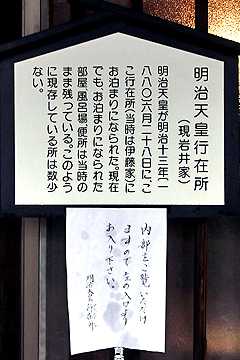 明治天皇行在所
(現岩井家)
明治天皇が明治十三年(一
八八〇)六月二十八日に、こ
こ行在所(当時は伊藤家)に
お泊まりになられた。現在
でも、お泊まりになられた
部屋、風呂場、便所は当時の
まま残っている。このよう
に現存している所は数少
ない。
内部をご覧いただけ
ますので左の入口より
お入り下さい。
明治天皇行在所